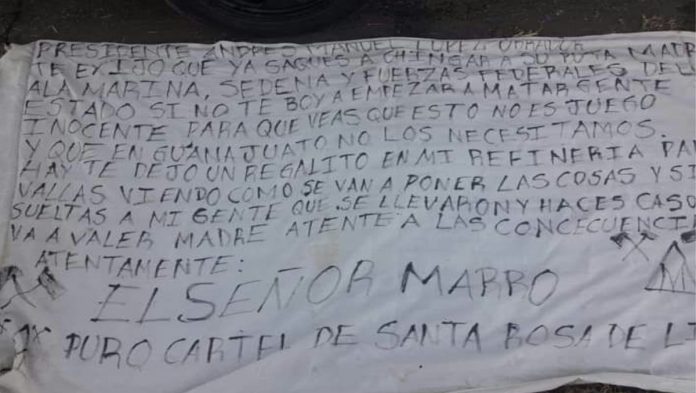 PRESIDENTE ANDRES MANUEL LOPEZ OBRADOR
TE EXIJO QUE YA SAQUES A CHINGAR A SU PUTA MADRE
ALA MARINA, SEDENA Y FUERZAS FEDERALES DEL
ESTADO SI NO TE BOY A EMPEZAR A MATAR GENTE
INOCENTE PARA QUE VEAS QUE ESTO NO ES JUEGO
Y QUE EN GUANAJUATO NO LOS NECESITAMOS.
HAY TE DEJO UN REGALITO EN MI REFINERIA PA
VALLAS VIENDO COMO SE VAN A PONER LAS COSAS Y SI
SUELTAS A MI GENTE QUE SE LLEVARON Y HACES CASO
VA A VALER MADRE ATENTE A LAS CONCECUENCI
ATENTAMENTE:
EL SEÑOR MARRO
PURO CARTEL DE SANTA ROSA DE LI